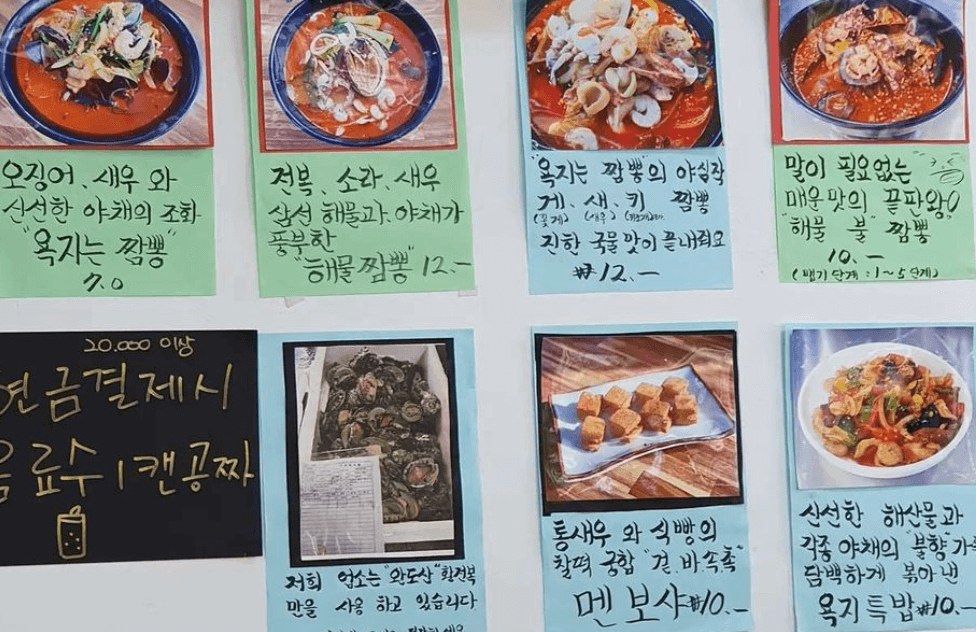 오징어、새우 와
신선한 야채의 조화
"욕지는 짬뽕"
7.0
전복、소라、새우
삼선 해물과、야채가
풍부한
"해물짬뽕" 12.-
"욕지는 짬뽕"의 야심작
게、새、키 짬뽕
(꽃게) (새우)
진한 국물맛이 끝내줘요
₩12.-
말이 필요없는
매운맛의 끝판왕
"해물 불" 짬뽕
10.-
(맵기단계 : 1~5단계)
20.000 이상
현금결제시
음료수 1캔공짜
저희 업소는 "완도산" 활전복
만을 사용 하고 있습니다
통새우 와 식빵의
찰떡 궁합 "겉.바.속.촉"
멘보샤 ₩10.-
신선한 해산물과
각종 야채의 "불향 가득
담백하게 볶아낸
욕지특밥 ₩10.-